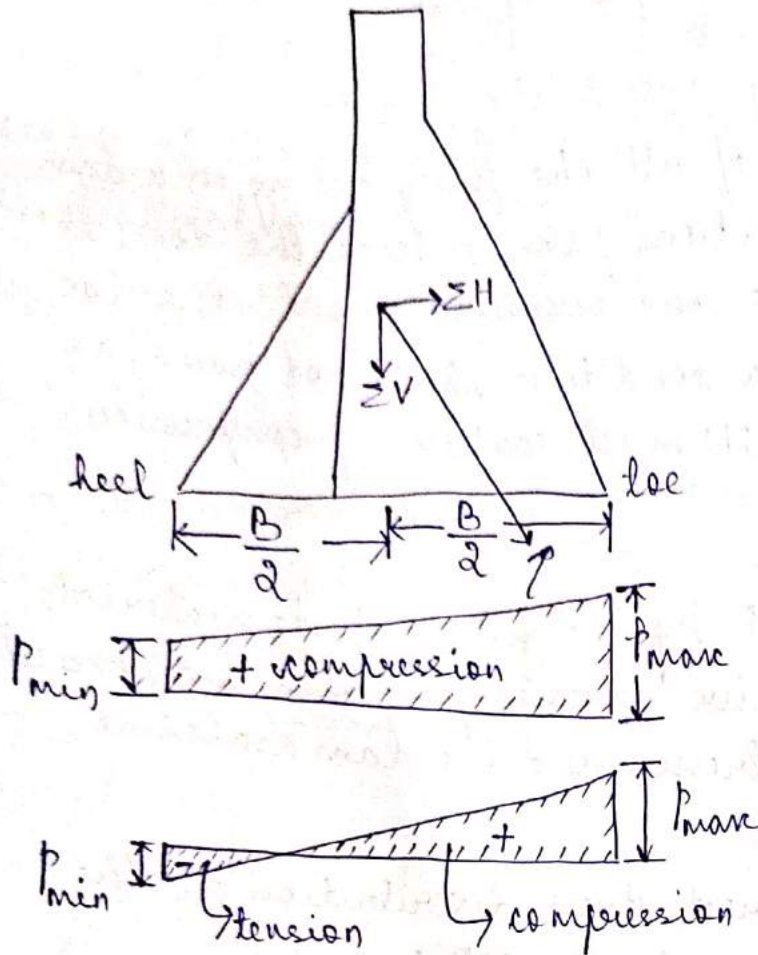 ΣH
ΣV
heel
toe
B/2
B/2
Pmin
+ compression
Pmax
Pmin
-
+
Pmax
tension
compression